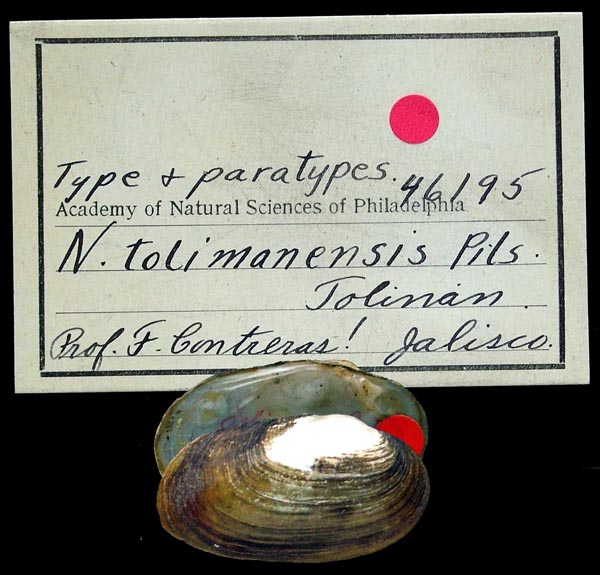 Type & paratypes. 46195
Academy of Natural Sciences of Philadelphia
N. tolimanensis Pils.
Tolinán.
Prof. F. Contreras! Jalisco.